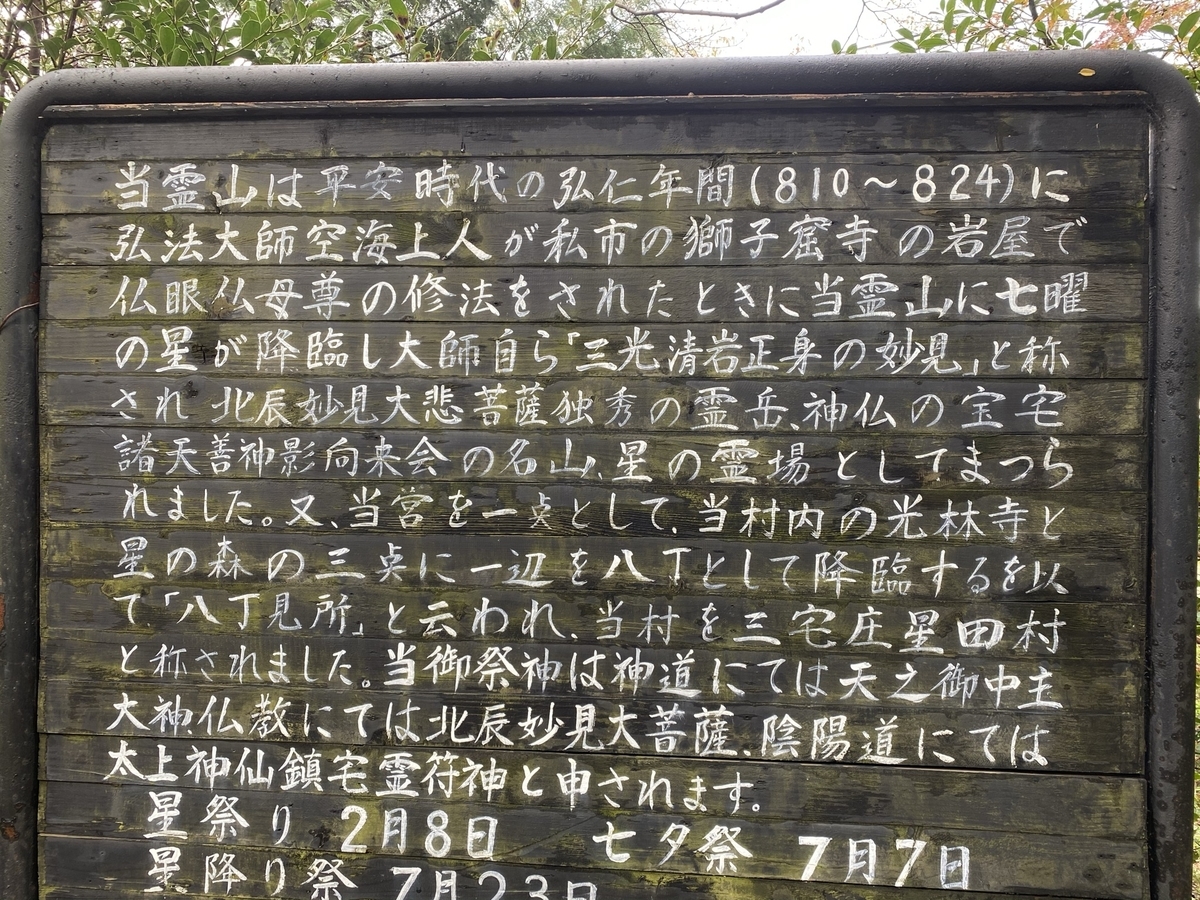 当霊山は平安時代の弘仁年間(810～824)に
弘法大師空海上人が私市の獅子窟寺の岩屋で
仏眼仏母尊の修法をされたときに当霊山に七曜
の星が降臨し大師自ら「三光清岩正身の妙見」と称
され北辰妙見大悲菩薩独秀の霊岳、神仏の宝宅
諸天善神影向来会の名山、星の霊場としてまつら
れました。又、当宮を一点として、当村内の光林寺と
星の森の三点に一辺を八丁として降臨するを以
て「八丁見所」と云われ、当村を三宅庄星田村
と称されました。当御祭神は神道にては天之御中主
大神、仏教にては北辰妙見大菩薩、陰陽道にては
太上神仙鎮宅霊符神と申されます。
星祭り 2月8日 七夕祭 7月7日
星降り祭 7月23日